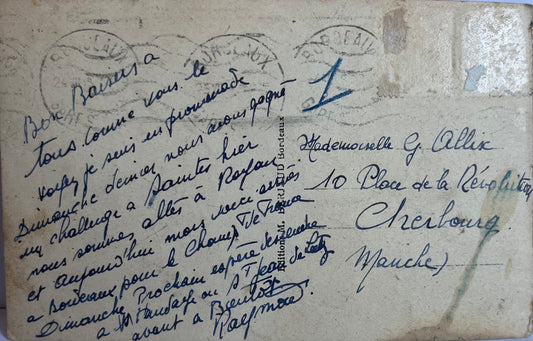 BORDEAUX
BORDEAUX
BORDEAUX
1
Bon Baisers a
tous comme vous le
voyez je suis en promenade
Dimanche dernier nous avons gagné
un challenge a Saintes hier
nous sommes allés à Royan
et aujourd'hui nous
a Bordeaux pour le Champ de France
Dimanche Prochain espère descendre
a Handaye ou St Jean de Luz
avant a Bientôt
Raymond
Bordeaux
Mademoiselle G. Allix
10 Place de la Révolution
Cherbourg
Manche)